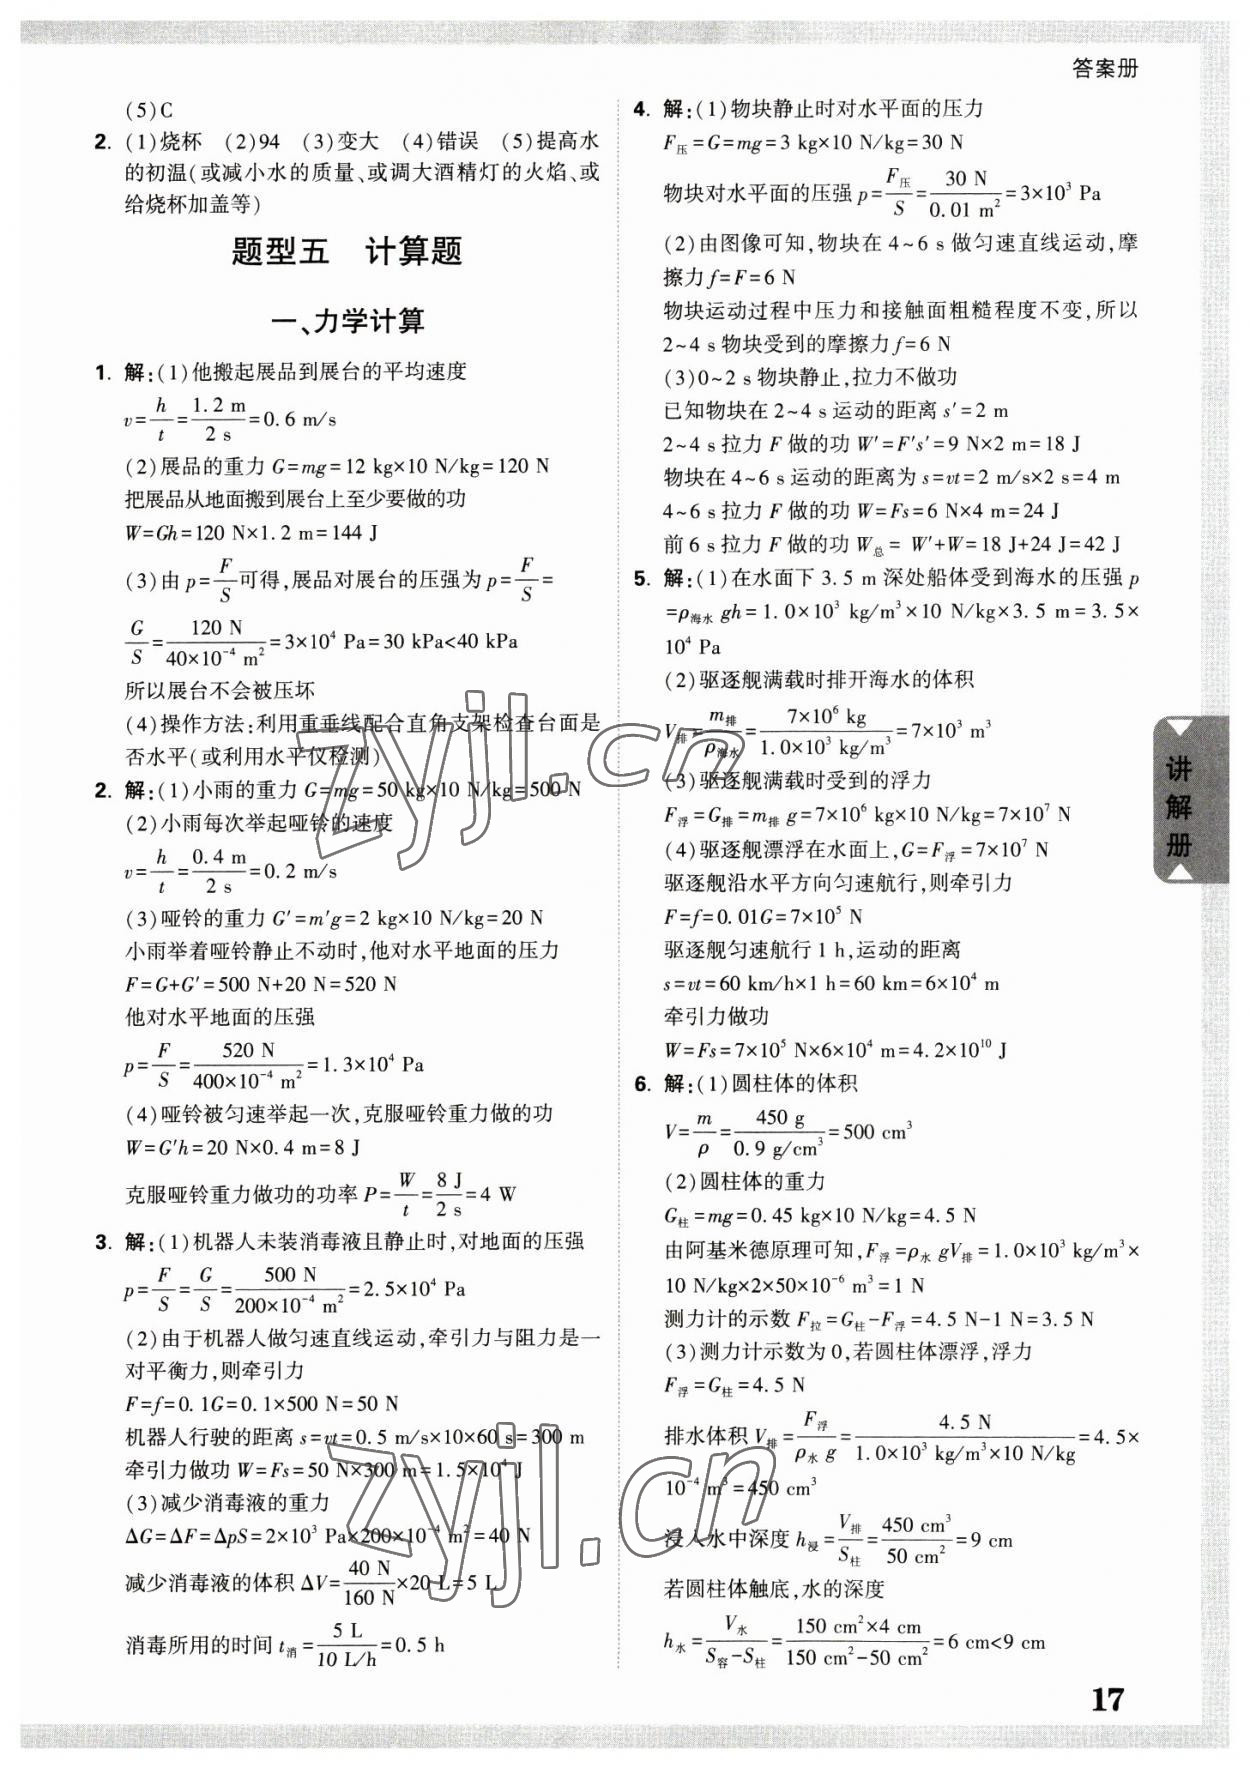 答案册
(5)C
2. (1)烧杯 (2)94 (3)变大 (4)错误 (5)提高水
的初温(或减小水的质量、或调大酒精灯的火焰、或
给烧杯加盖等)
题型五 计算题
一、力学计算
1. 解:(1)他搬起展品到展台的平均速度
v=h/t=1.2 m/2 s=0.6 m/s
(2)展品的重力 G=mg=12 kg×10 N/kg=120 N
把展品从地面搬到展台上至少要做的功
W=Gh=120 N×1.2 m=144 J
(3)由 p=F/S可得,展品对展台的压强为 p=F/S=
G/S=120 N/40×10⁻⁴ m²=3×10⁴ Pa=30 kPa<40 kPa
所以展台不会被压坏
(4)操作方法:利用重垂线配合直角支架检查台面是
否水平(或利用水平仪检测)
2. 解:(1)小雨的重力 G=mg=50 kg×10 N/kg=500 N
(2)小雨每次举起哑铃的速度
v=h/t=0.4 m/2 s=0.2 m/s
(3)哑铃的重力 G′=m′g=2 kg×10 N/kg=20 N
小雨举着哑铃静止不动时,他对水平地面的压力
F=G+G′=500 N+20 N=520 N
他对水平地面的压强
p=F/S=520 N/400×10⁻⁴ m²=1.3×10⁴ Pa
(4)哑铃被匀速举起一次,克服哑铃重力做的功
W=G′h=20 N×0.4 m=8 J
克服哑铃重力做功的功率 P=W/t=8 J/2 s=4 W
3. 解:(1)机器人未装消毒液且静止时,对地面的压强
p=F/S=G/S=500 N/200×10⁻⁴ m²=2.5×10⁴ Pa
(2)由于机器人做匀速直线运动,牵引力与阻力是一
对平衡力,则牵引力
F=f=0.1G=0.1×500 N=50 N
机器人行驶的距离 s=vt=0.5 m/s×10×60 s=300 m
牵引力做功 W=Fs=50 N×300 m=1.5×10⁴ J
(3)减少消毒液的重力
ΔG=ΔF=ΔpS=2×10³ Pa×200×10⁻⁴ m²=40 N
减少消毒液的体积 ΔV=40 N/160 N×20 L=5 L
消毒所用的时间 t消=5 L/10 L/h=0.5 h
4. 解:(1)物块静止时对水平面的压力
F压=G=mg=3 kg×10 N/kg=30 N
物块对水平面的压强 p=F压/S=30 N/0.01 m²=3×10³ Pa
(2)由图像可知,物块在 4~6 s 做匀速直线运动,摩
擦力 f=F=6 N
物块运动过程中压力和接触面粗糙程度不变,所以
2~4 s 物块受到的摩擦力 f=6 N
(3)0~2 s 物块静止,拉力不做功
已知物块在 2~4 s 运动的距离 s′=2 m
2~4 s 拉力 F 做的功 W′=F′s′=9 N×2 m=18 J
物块在 4~6 s 运动的距离为 s=vt=2 m/s×2 s=4 m
4~6 s 拉力 F 做的功 W=Fs=6 N×4 m=24 J
前 6 s 拉力 F 做的功 W总= W′+W=18 J+24 J=42 J
5. 解:(1)在水面下 3.5 m 深处船体受到海水的压强 p
=ρ海水 gh=1.0×10³ kg/m³×10 N/kg×3.5 m=3.5×
10⁴ Pa
(2)驱逐舰满载时排开海水的体积
V排=m排/ρ海水=7×10⁶ kg/1.0×10³ kg/m³=7×10³ m³
(3)驱逐舰满载时受到的浮力
F浮=G排=m排 g=7×10⁶ kg×10 N/kg=7×10⁷ N
(4)驱逐舰漂浮在水面上,G=F浮=7×10⁷ N
驱逐舰沿水平方向匀速航行,则牵引力
F=f=0.01G=7×10⁵ N
驱逐舰匀速航行 1 h,运动的距离
s=vt=60 km/h×1 h=60 km=6×10⁴ m
牵引力做功
W=Fs=7×10⁵ N×6×10⁴ m=4.2×10¹⁰ J
6. 解:(1)圆柱体的体积
V=m/ρ=450 g/0.9 g/cm³=500 cm³
(2)圆柱体的重力
G柱=mg=0.45 kg×10 N/kg=4.5 N
由阿基米德原理可知,F浮=ρ水 gV排=1.0×10³ kg/m³×
10 N/kg×2×50×10⁻⁶ m³=1 N
测力计的示数 F拉=G柱-F浮=4.5 N-1 N=3.5 N
(3)测力计示数为 0,若圆柱体漂浮,浮力
F浮=G柱=4.5 N
排水体积 V排=F浮/ρ水 g=4.5 N/1.0×10³ kg/m³×10 N/kg=4.5×
10⁻⁴ m³=450 cm³
浸入水中深度 h浸=V排/S柱=450 cm³/50 cm²=9 cm
若圆柱体触底,水的深度
h水=V水/S容-S柱=150 cm²×4 cm/150 cm²-50 cm²=6 cm<9 cm
讲解册
17
zyjl.cn
zyjl.cn